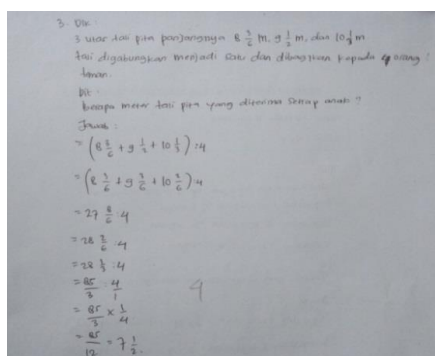 3. Dik :
3 utas tali pita panjangnya 8 3/6 m, 9 1/2 m, dan 10 1/3 m
tali digabungkan menjadi satu dan dibagikan kepada 4 orang
teman.
Dit :
berapa meter tali pita yang diterima setiap anak ?
Jawab :
= (8 3/6 + 9 1/2 + 10 1/3) : 4
= (8 3/6 + 9 3/6 + 10 2/6) : 4
= 27 8/6 : 4
= 28 2/6 : 4
= 28 1/3 : 4
= 85/3 : 4/1
= 85/3 x 1/4
= 85/12 = 7 1/2.
9